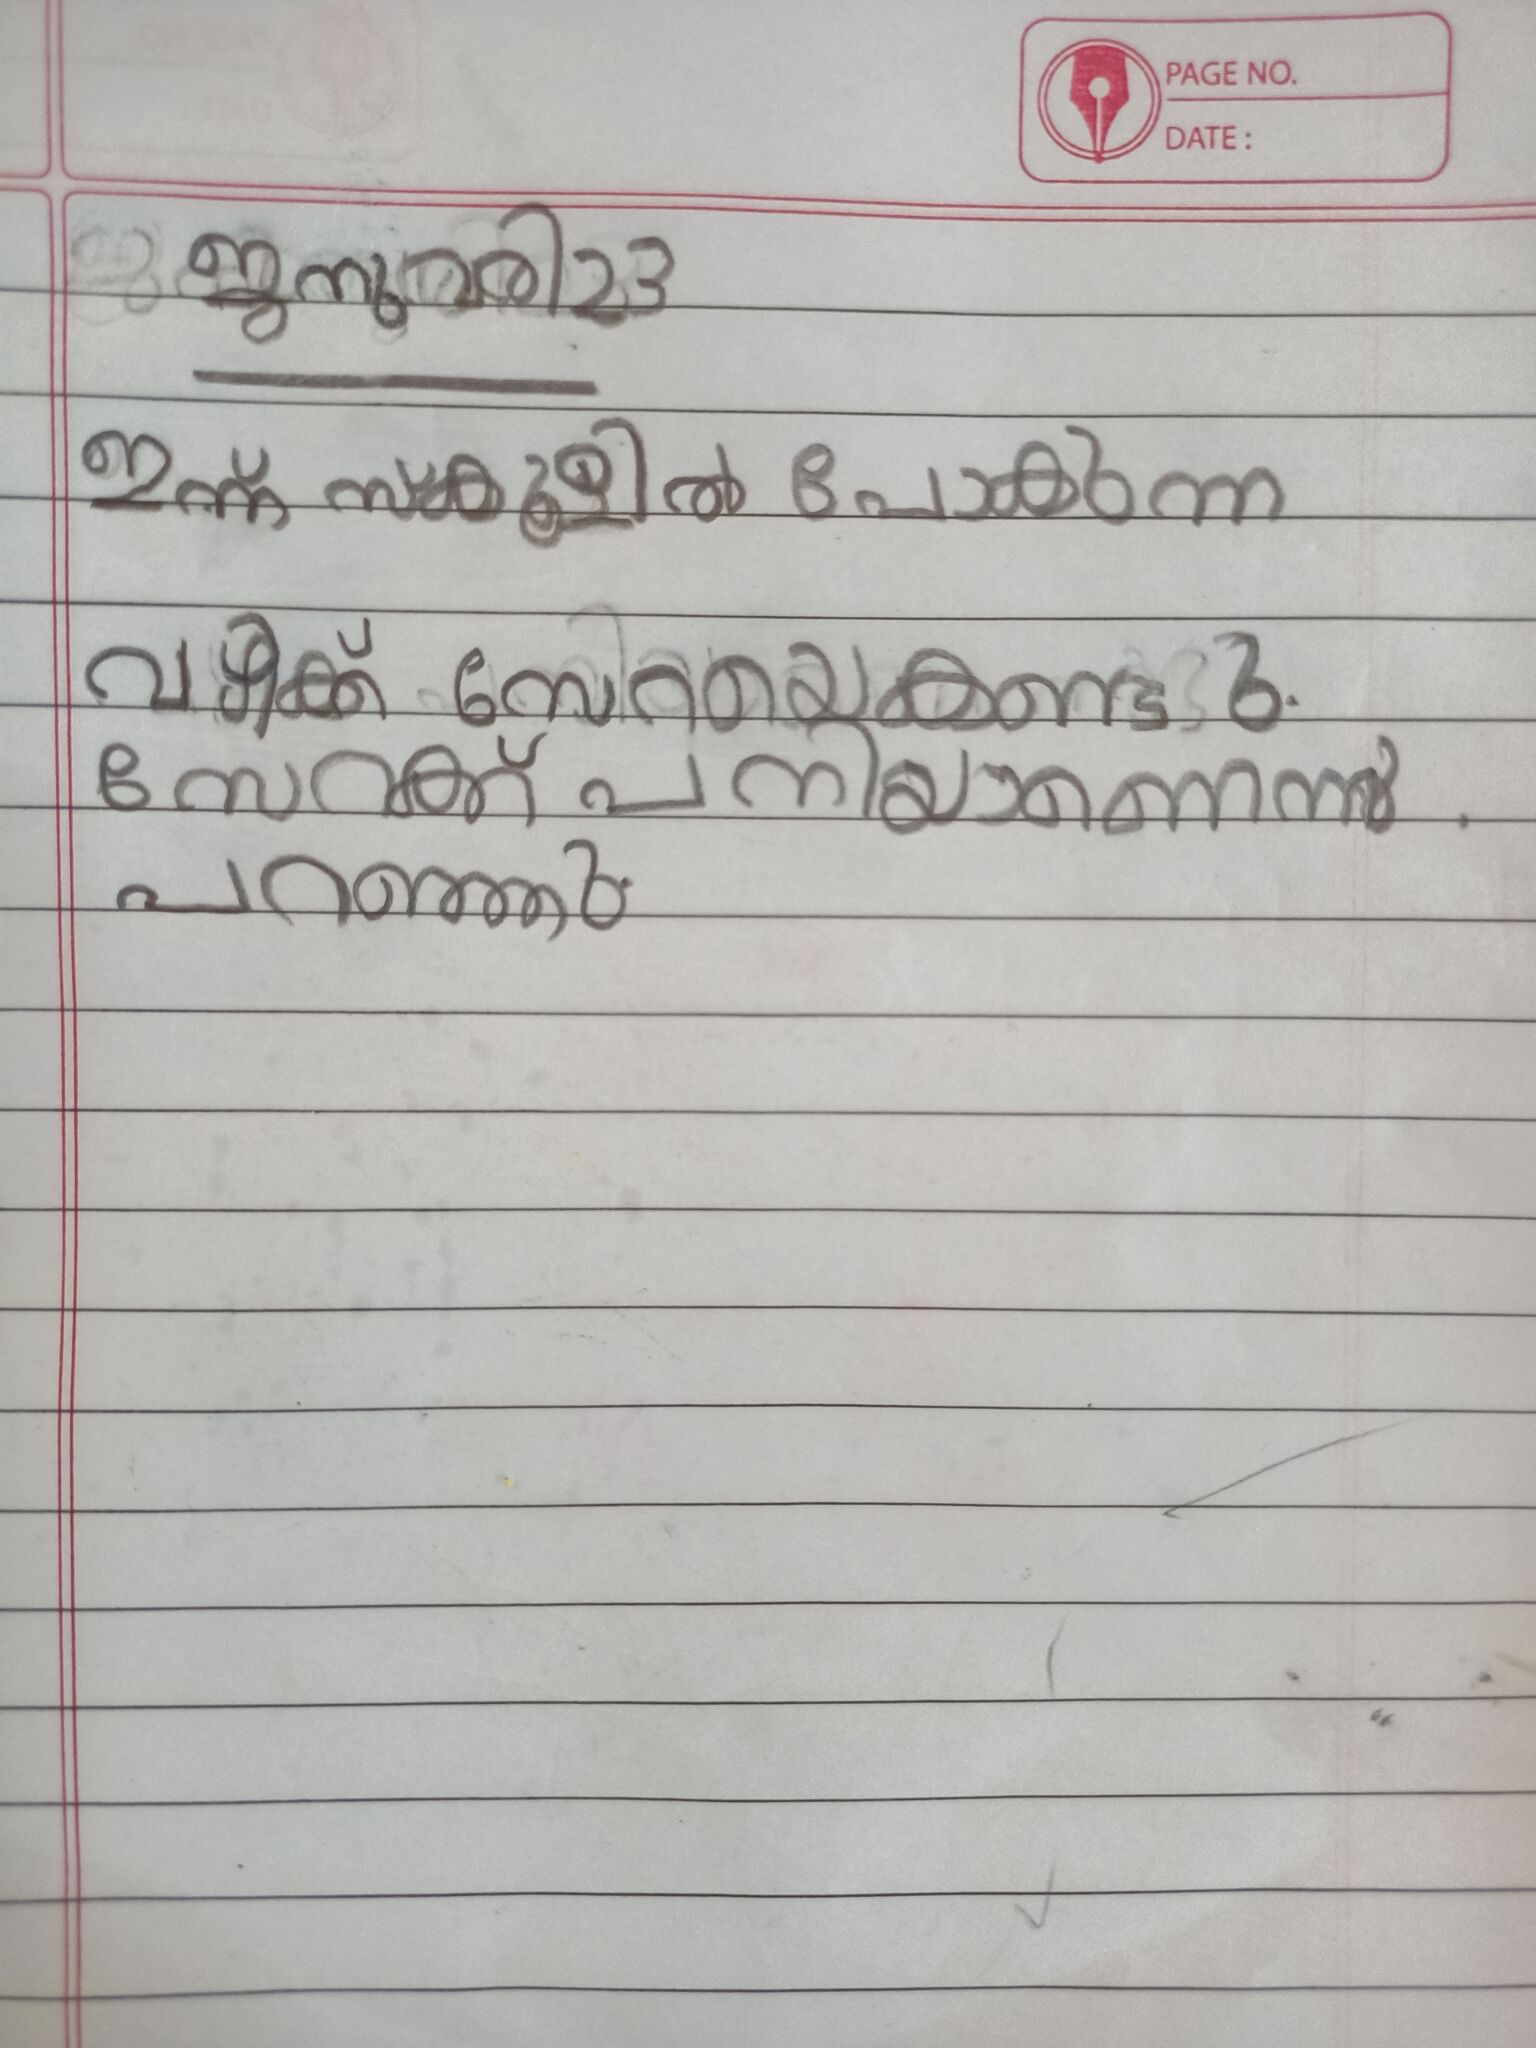 PAGE NO.
DATE :
ജനുവരി 23
ഇന്ന് സ്കൂളിൽ പോകുന്ന
വഴിക്ക് സേറയെ കണ്ടു.
സേറക്ക് പനിയാണെന്ന് .
പറഞ്ഞു.